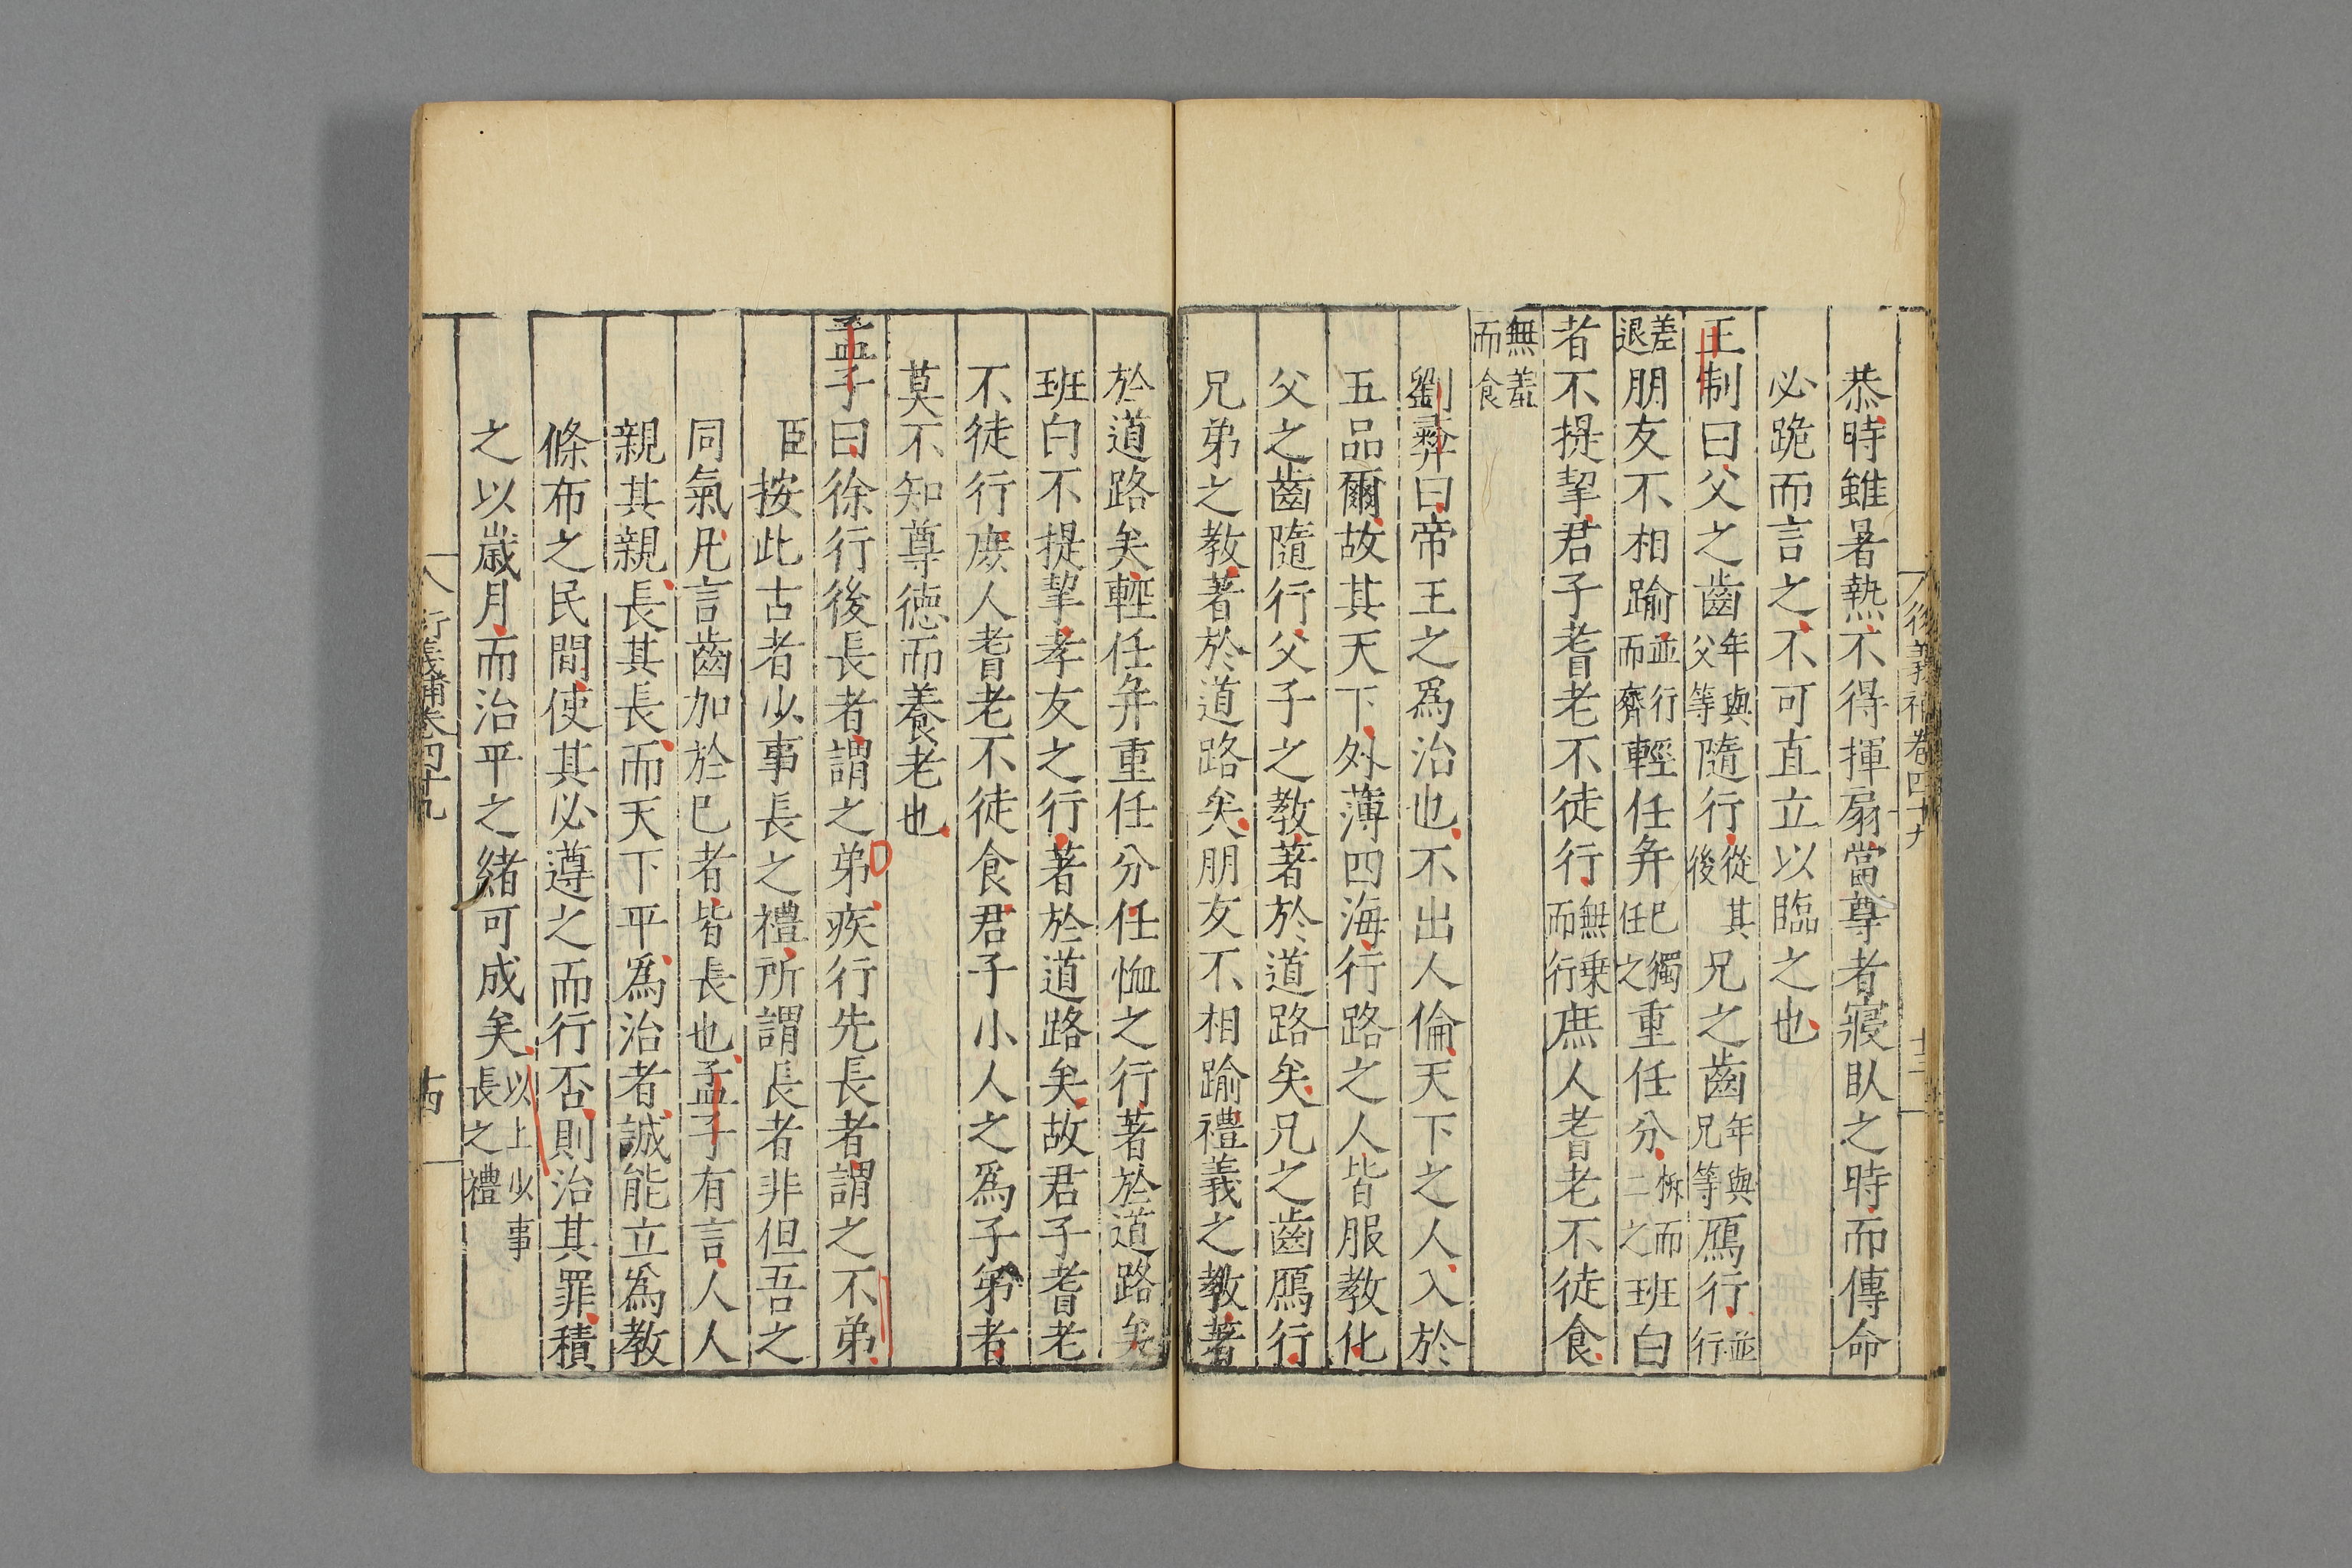 恭時雖暑熱不得揮扇當尊者寢臥之時而傳命
必跪而言之不可直立以臨之也
王制曰父之齒年與父等隨行從其後兄之齒年與兄等鴈行並行
差退朋友不相踰並行而齊輕任并已獨任之重任分析而二之班白
者不提挈君子耆老不徒行無乗而行庶人耆老不徒食
無羞而食
劉彞曰帝王之爲治也不出人倫天下之人入於
五品爾故其天下外薄四海行路之人皆服教化
父之齒隨行父子之教著於道路矣兄之齒鴈行
兄弟之教著於道路矣朋友不相踰禮義之教著
於道路矣輕任并重任分任恤之行著於道路矣
班白不提挈孝友之行著於道路矣故君子耆老
不徒行庶人耆老不徒食君子小人之爲子弟者
莫不知尊德而養老也
孟子曰徐行後長者謂之弟疾行先長者謂之不弟
臣按此古者少事長之禮所謂長者非但吾之
同氣凡言齒加於已者皆長也孟子有言人人
親其親長其長而天下平爲治者誠能立爲教
條布之民間使其必遵之而行否則治其罪積
之以歲月而治平之緒可成矣以上少事長之禮
衍義補卷四十九 十四